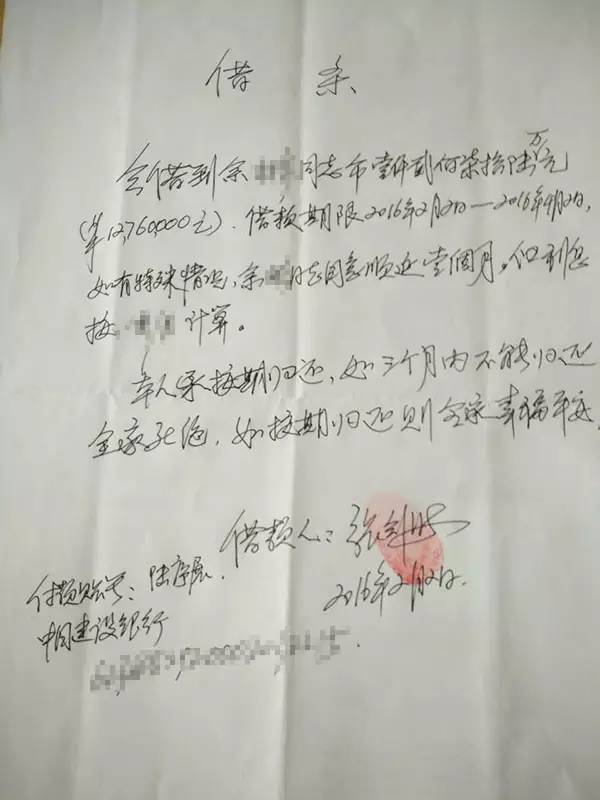 借条
今借到余 同志币壹仟贰佰柒拾陆万元
(¥12,760,000元). 借款期限2016年2月2日—2016年4月2日,
如有特殊情况,余 同志同意顺延壹個月,但利息
按 计算。
本人承按期归还,如三个月内不能归还
全家死绝,如按期归还则全家幸福平安.
借款人:张剑
2016年2月2日.
付款账号:陆
中国建设银行